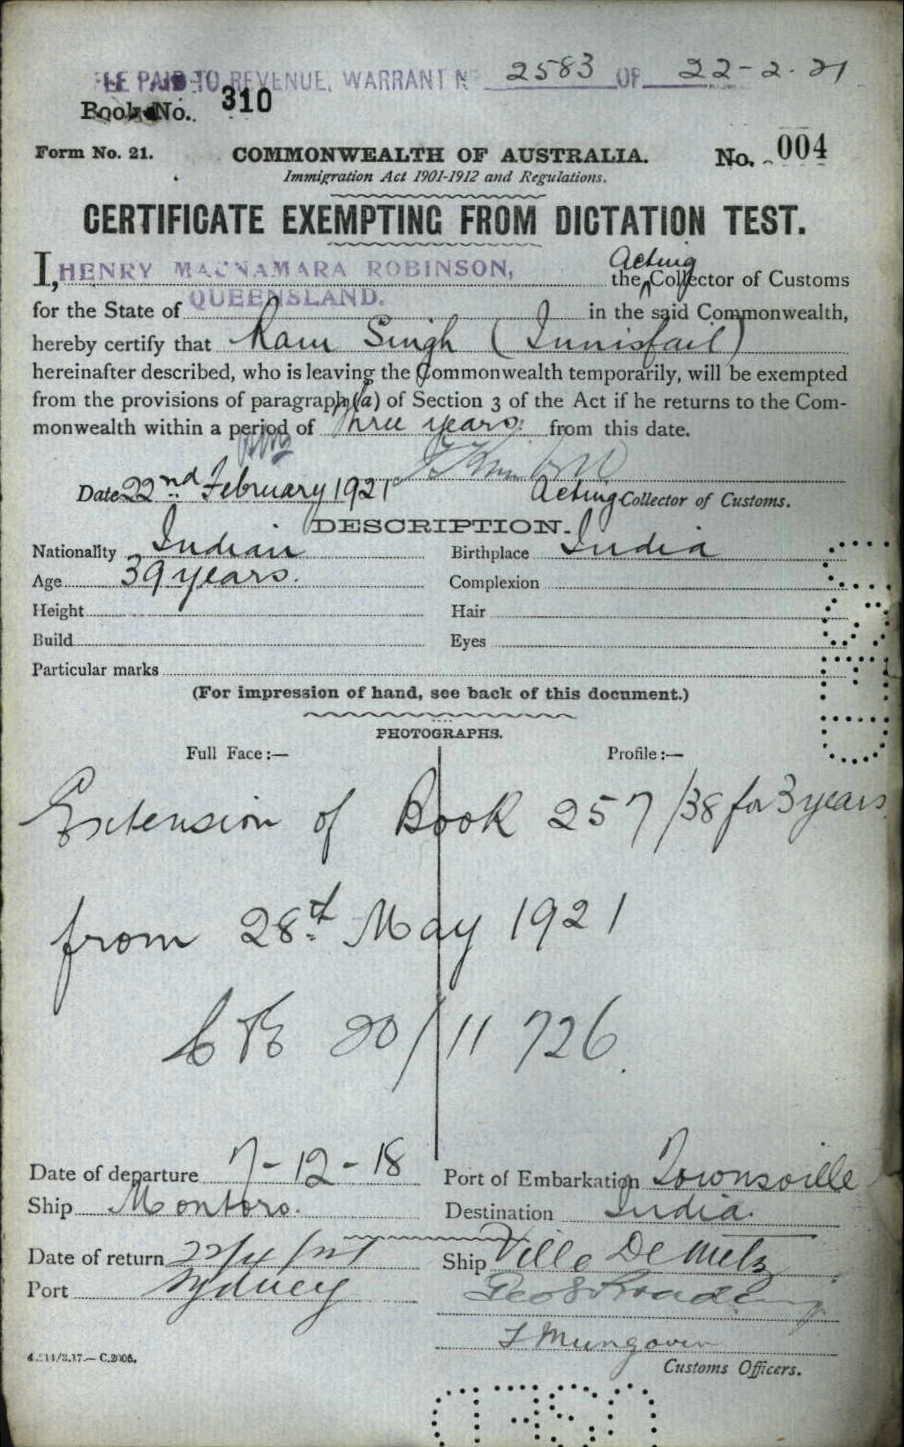 PAID TO REVENUE, WARRANT No 2583 OF 22-2-21
Book No. 310
Form No. 21. COMMONWEALTH OF AUSTRALIA. No. 004
Immigration Act 1901-1912 and Regulations.
CERTIFICATE EXEMPTING FROM DICTATION TEST.
I, HENRY MACNAMARA ROBINSON, the Acting Collector of Customs
for the State of QUEENSLAND. in the said Commonwealth,
hereby certify that Ram Singh (Innisfail)
hereinafter described, who is leaving the Commonwealth temporarily, will be exempted
from the provisions of paragraph (a) of Section 3 of the Act if he returns to the Com-
monwealth within a period of three years from this date.
Date 22nd February 1921 Acting Collector of Customs.
DESCRIPTION.
Nationality Indian Birthplace India
Age 39 years. Complexion
Height Hair
Build Eyes
Particular marks
(For impression of hand, see back of this document.)
PHOTOGRAPHS.
Full Face:— Profile:—
Extension of Book 257/38 for 3 years
from 28th May 1921
20/11726
Date of departure 7-12-18 Port of Embarkation Townsville
Ship Montoro. Destination India.
Date of return Ship Ville De Metz
Port Sydney
Customs Officers.